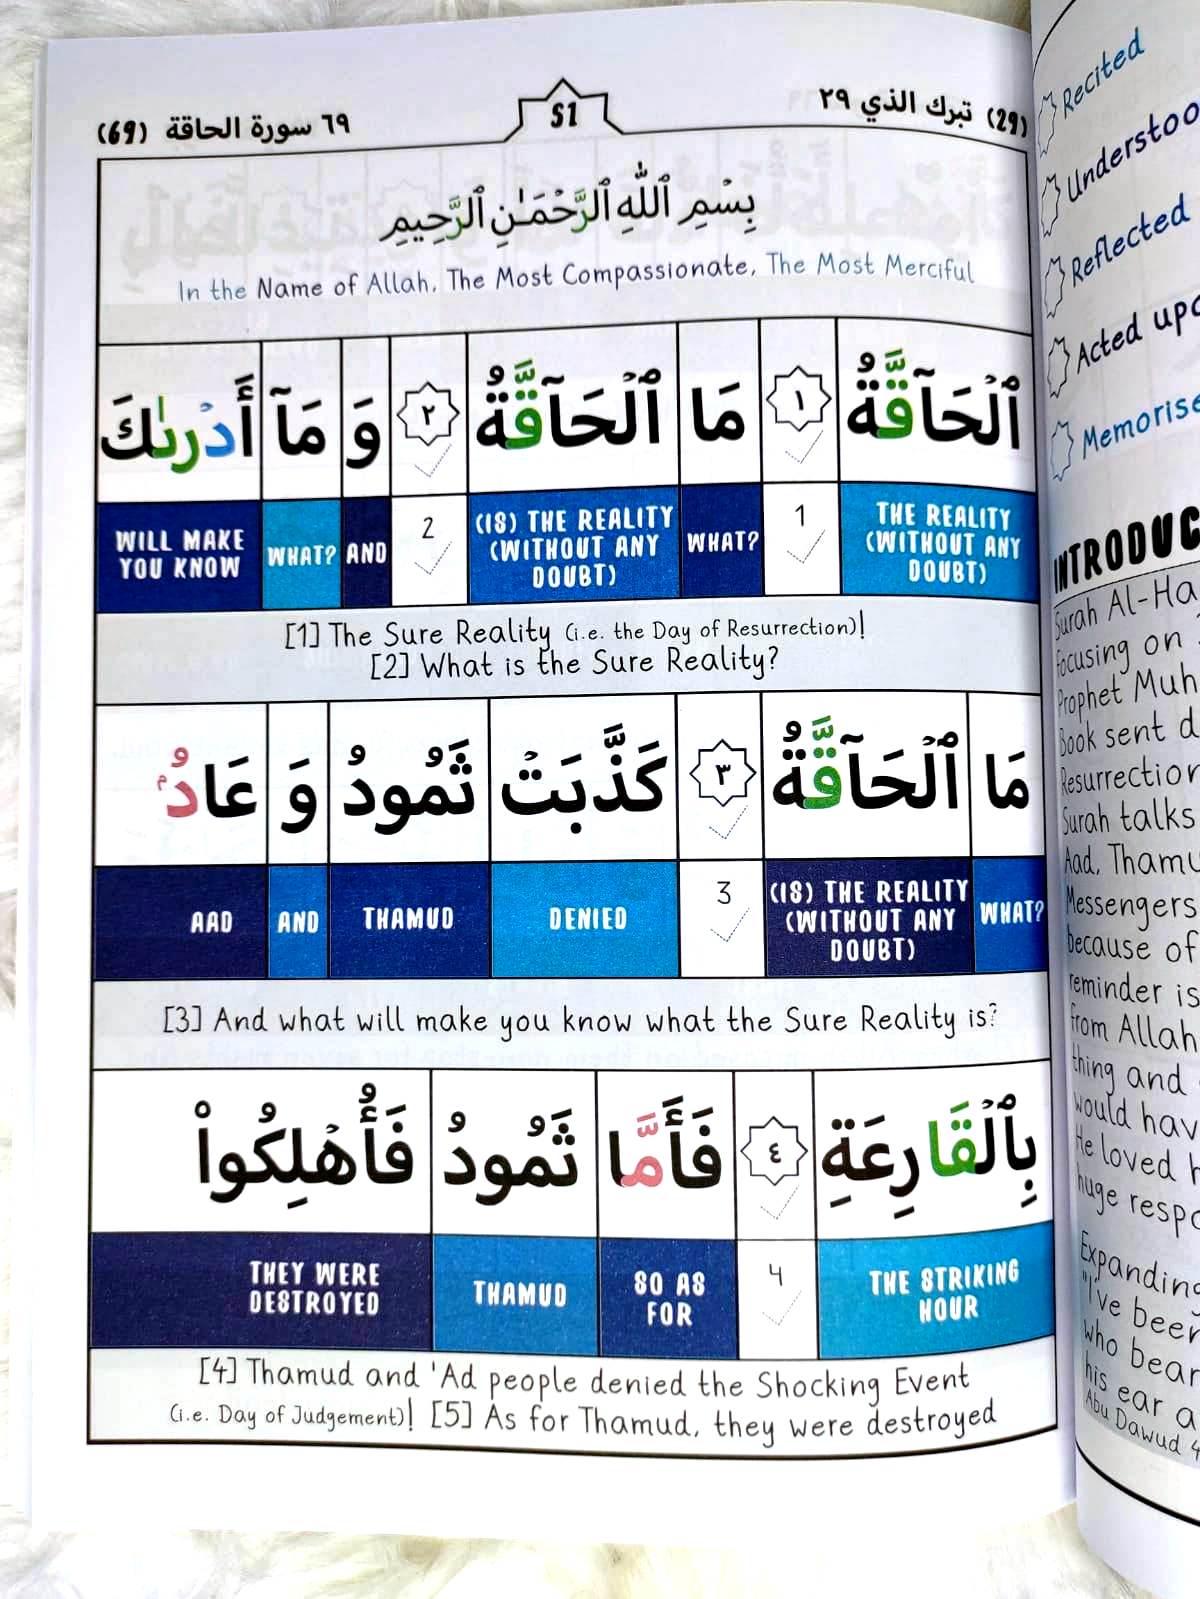 ٦٩ سورة الحاقة (69)
51
(29) تبرك الذي ٢٩
بِسْمِ ٱللَّهِ ٱلرَّحْمَـٰنِ ٱلرَّحِيمِ
In the Name of Allah, The Most Compassionate, The Most Merciful
ٱلْحَآقَّةُ ١ مَا ٱلْحَآقَّةُ ٢ وَ مَآ أَدْرَىٰكَ
THE REALITY (WITHOUT ANY DOUBT)
1
WHAT?
(IS) THE REALITY (WITHOUT ANY DOUBT)
2
AND
WHAT?
WILL MAKE YOU KNOW
[1] The Sure Reality (i.e. the Day of Resurrection)!
[2] What is the Sure Reality?
مَا ٱلْحَآقَّةُ ٣ كَذَّبَتْ ثَمُودُ وَ عَادُۢ
WHAT?
(IS) THE REALITY (WITHOUT ANY DOUBT)
3
DENIED
THAMUD
AND
AAD
[3] And what will make you know what the Sure Reality is?
بِٱلْقَارِعَةِ ٤ فَأَمَّا ثَمُودُ فَأُهْلِكُوا۟
THE STRIKING HOUR
4
SO AS FOR
THAMUD
THEY WERE DESTROYED
[4] Thamud and 'Ad people denied the Shocking Event
(i.e. Day of Judgement)! [5] As for Thamud, they were destroyed
Recited
Reflected
Acted
Surah
Focusing on
Prophet
Book sent
Surah talks
Aad,
Messengers
because of
reminder is
from Allah
thing and
would
He loved
huge
Expanding
"I've been
who
his ear
Abu Dawud